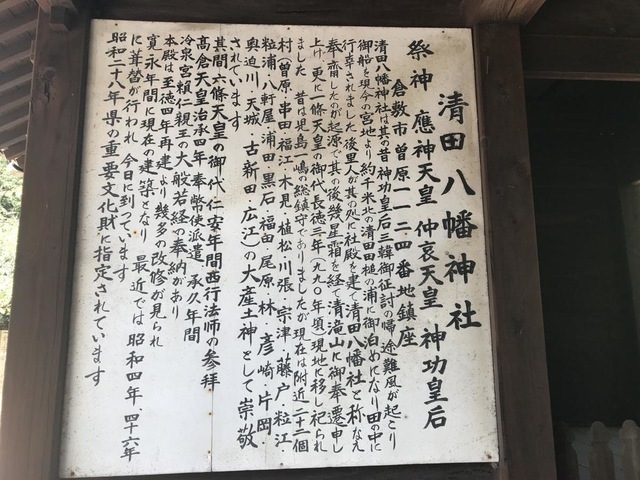 清田八幡神社
倉敷市曽原一一二四番地鎮座
祭神 應神天皇 仲哀天皇・神功皇后
清田八幡神社は其の昔神功皇后三韓御征討の帰途難風が起こり
御船を現今の宮地より約千米北の清田樋の浦に御泊めになり田の中に
行幸されました後里人が其の処に社殿を建て清田八幡社と称なえ
奉齋したのが起源で其の後幾星霜を経て清滝山に御奉遷申し
上げ更に一條天皇の御代長徳三年(九九〇年頃)現地に移し祀られ
ました 昔は児島一嶋の総鎮守でありましたが現在は附近二十二個
村(曽原・串田・福江・木見・植松・川張・宗津・藤戸・粒江・
粒浦・八軒屋・浦田・黒石・福田・尾原・林・彦崎・片岡・
奥迫川・天城・古新田・広江)の大産土神として崇敬
されています
其間六條天皇の御代仁安年間西行法師の参拜
高倉天皇治承四年奉幣使派遣 承久年間
冷泉宮頼仁親王の大般若経の奉納があり
本殿は至徳四年再建より幾多の改修が見られ
寛永年間に現在の建築となり 最近では昭和四年、四十六年
に葺替が行われ 今日に到っています
昭和二十八年県の重要文化財に指定されています